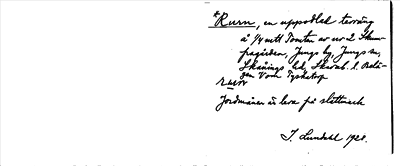 *Rurn, en uppodlad terräng
å 1/4 mtl Tomten av nr 2 Skum-
pagården, Jungs by, Jungs sn,
Skånings hd, Skarab. l. Belä-
gen Vom Tysketorp
rurn
Jordmånen är lera på slättmark
J. Lundahl 1928.